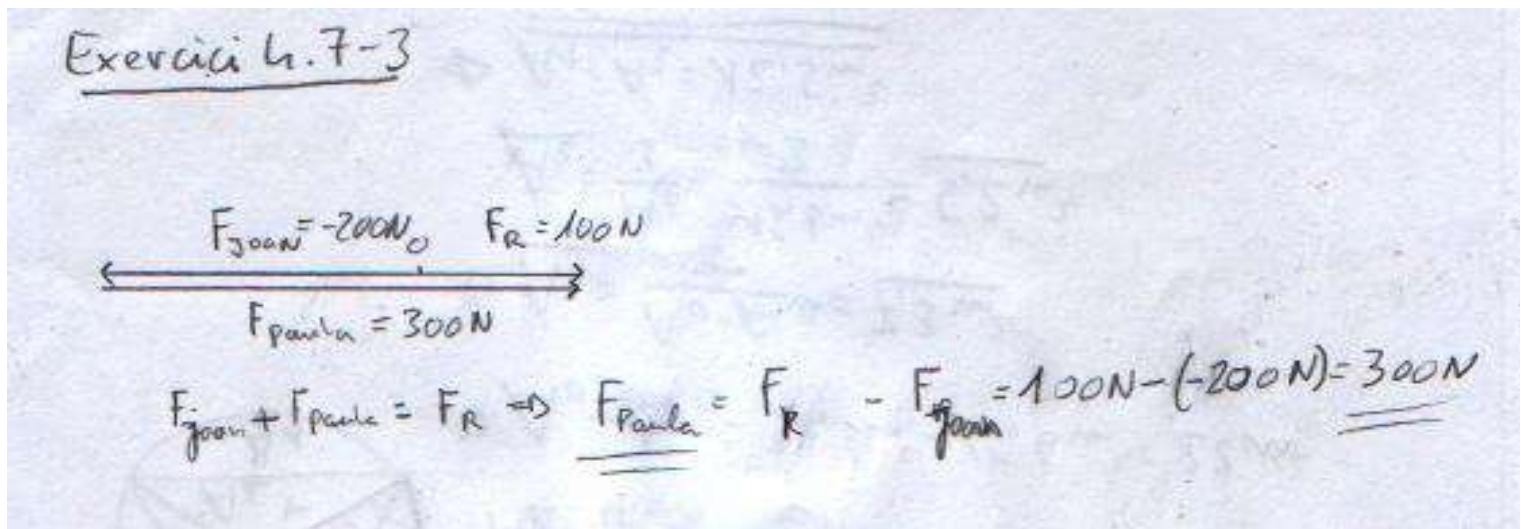 Exercici 4.7-3
F_Joan = -200N O F_R = 100N
F_Paula = 300N
F_Joan + F_Paula = F_R ⇒ F_Paula = F_R - F_Joan = 100N-(-200N) = 300N